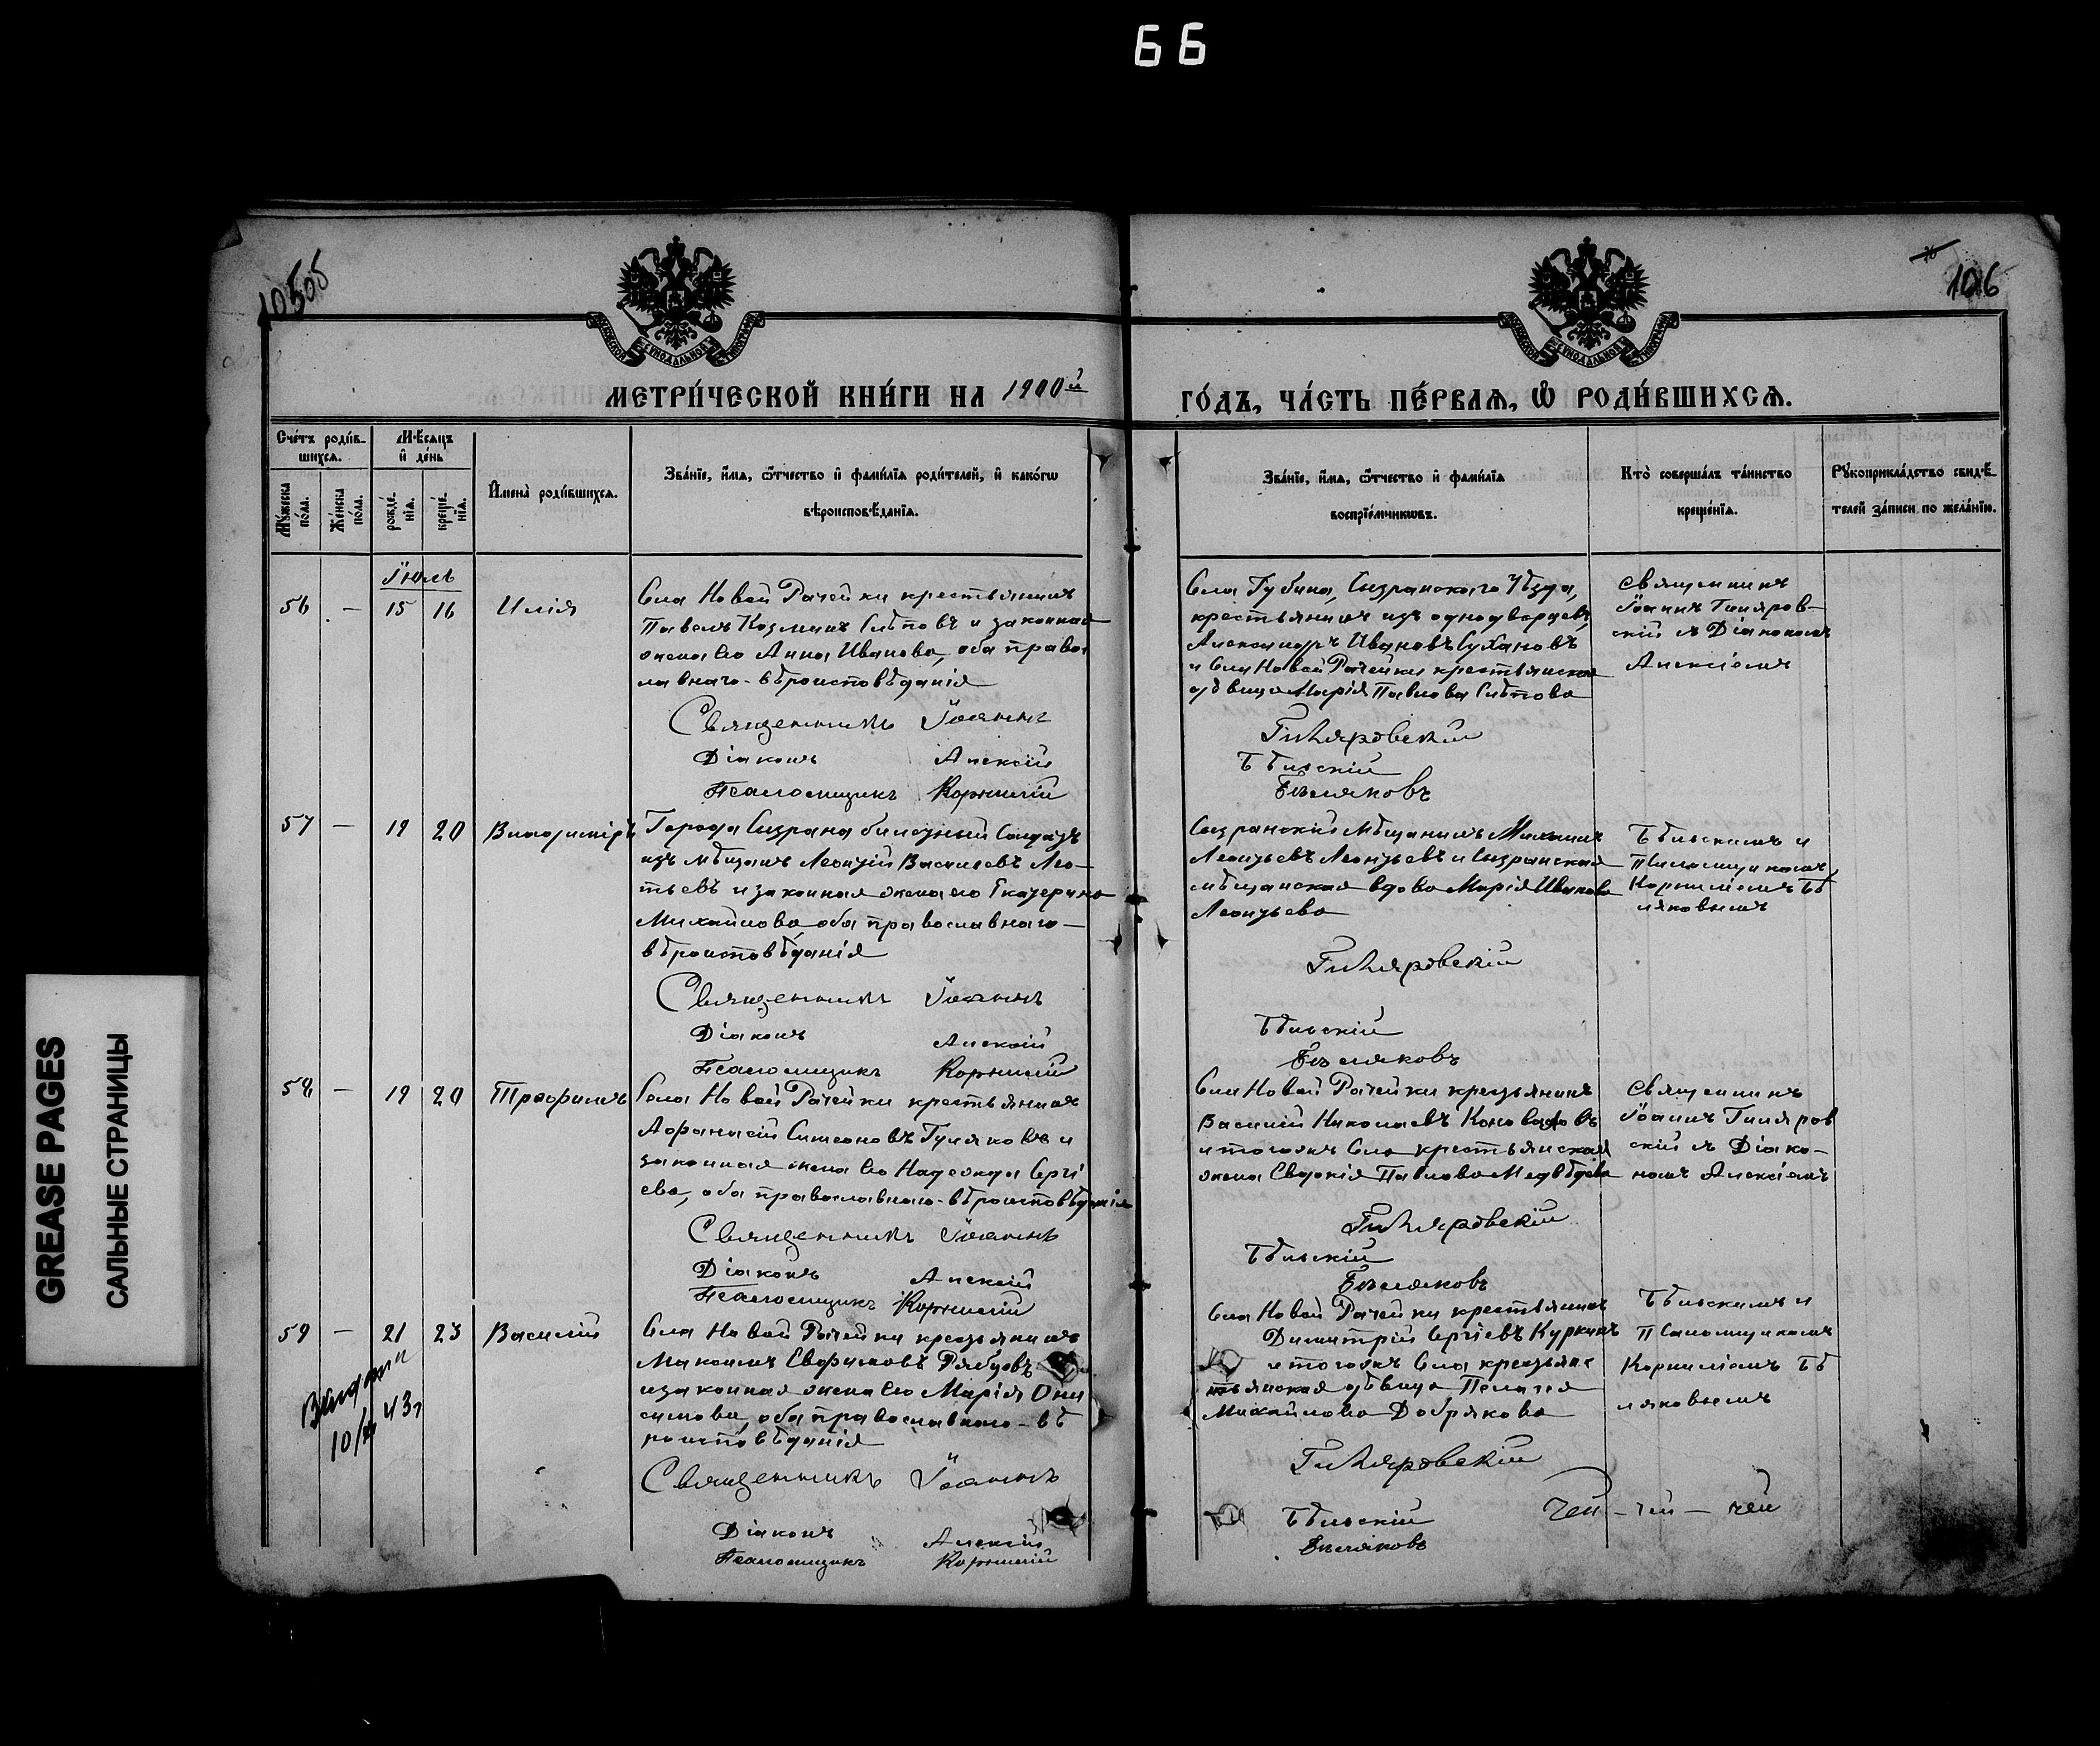 66
GREASE PAGES
САЛЬНЫЕ СТРАНИЦЫ
105
106
МЕТРИ́ЧЕСКОЙ КНИ́ГИ НА 1900й
ГО́ДЪ, ЧА́СТЬ ПЕ́РВАѦ, Ѽ РОДИ́ВШИХСѦ.
Сче́тъ роди́в-
шихсѧ.
Мѣ́сяцъ
и҆ де́нь
Мꙋ́жеска по́ла.
Же́нска по́ла.
рожде́-нїѧ.
креще́-нїѧ.
И҆мена̀ роди́вшихсѧ.
Зва́нїе, и҆́мѧ, ѻ҆́тчество и҆ фами́лїѧ роди́телей, и҆ како́гѡ
вѣроисповѣ́данїѧ.
Зва́нїе, и҆́мѧ, ѻ҆́тчество и҆ фами́лїѧ
воспрїе́мникѡвъ.
Кто̀ соверша́лъ та́инство
креще́нїѧ.
Рꙋкоприкла́дство свидѣ́-
телей за́писи по жела́нїю.
Іюль
56 — 15 16 Илія
Села Новой Рачейки крестьянинъ
Павелъ Козминъ Сѣтовъ и законная
жена его Анна Иванова, оба право
лавнаго-вѣроисповѣданія
Священникъ Іоаннъ
Діаконъ Алексій
Псаломщикъ Корнилій
Села Губина, Сызранскаго Уѣзда,
крестьянинъ изъ однодворцевъ,
Александръ Ивановъ Сухановъ
и Села Новой Рачейки крестьянская
дѣвица Марія Павлова Сѣтова
Гиляровскій
Бѣльскій
Бѣляковъ
Священникъ
Іоаннъ Гиляров-
скій съ Діакономъ
Алексіемъ
57 — 19 20 Владиміръ
Города Сызрана билетный Солдатъ
изъ мѣщанъ Леонтій Васильевъ Лео-
тьевъ и законная жена его Екатерина
Михайлова оба православнаго-
вѣроисповѣданія
Священникъ Іоаннъ
Діаконъ Алексій
Псаломщикъ Корнилій
Сызранскій Мѣщанинъ Михаилъ
Леонтьевъ Леонтьевъ и Сызранская
мѣщанская вдова Марія Иванова
Леонтьева
Гиляровскій
Бѣльскій
Бѣляковъ
Бѣльскимъ и
Псаломщикомъ
Корниліемъ Бѣ
ляковымъ
58 — 19 20 Трофимъ
Села Новой Рачейки крестьянинъ
Афанасій Симеоновъ Гуляковъ и
законная жена его Надежда Сергі
ева, оба православнаго-вѣроисповѣданія
Священникъ Іоаннъ
Діаконъ Алексій
Псаломщикъ Корнилій
Села Новой Рачейки крестьянинъ
Василій Николаевъ Коноваловъ
и тогожъ Села крестьянская
жена Евдокія Павлова Медвѣдева
Гиляровскій
Бѣльскій
Бѣляковъ
Священникъ
Іоаннъ Гиляров
скій съ Діако-
номъ Алексіемъ
59 — 21 23 Василій
10/ 43г
Села Новой Рачейки крестьянинъ
Максимъ Евфимовъ Рябцовъ
и законная жена его Марія Они
симова, оба православнаго-вѣ
роисповѣданія
Священникъ Іоаннъ
Діаконъ Алексій
Псаломщикъ Корнилій
Села Новой Рачейки крестьянинъ
Димитрій Сергіевъ Куркинъ
и тогожъ Села крестьянс
тьянская дѣвица Пелагея
Михайлова Добрякова
Гиляровскій
Бѣльскій
Бѣляковъ
Бѣльскимъ и
Псаломщикомъ
Корниліемъ Бѣ
ляковымъ
чей - чей - чей